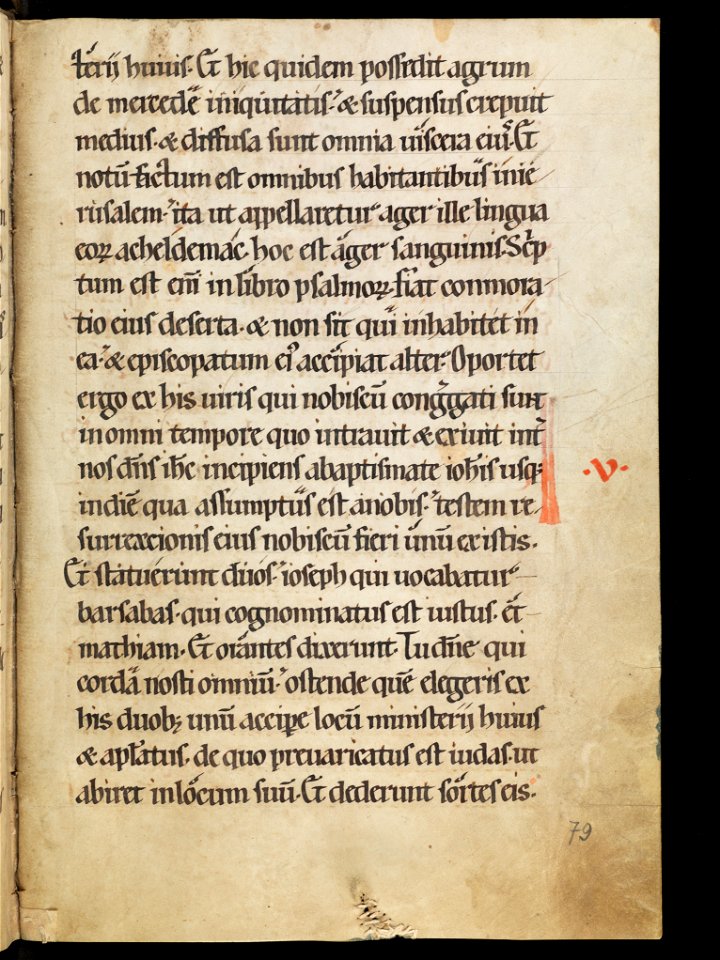 terij huius. Et hic quidem possedit agrum
de mercede iniquitatis. & suspensus crepuit
medius. & diffusa sunt omnia uiscera eiuˢ. Et
notū factum est omnibus habitantibus inie
rusalem. ita ut appellaretur ager ille lingua
eoꝝ acheldemac. hoc est ager sanguinis. Scⁱp
tum est eni̅ in libro psalmoꝝ. fiat conmora
tio eius deserta. & non sit qui inhabitet in
ea. & episcopatum eiꝰ accipiat alter. Oportet
ergo ex his uiris qui nobiscū congᵉgati sunt
in omni tempore quo intrauit & exiuit intᵉ
nos dn̅s ih̅c incipiens abaptismate ioh̅is usqꝫ
indiē qua assumptus est anobis. testem re
surrexcionis eius nobiscū fieri unū ex istis.
Et statuerunt duos. ioseph qui uocabatur
barsabas. qui cognominatus est iustus. et
mathiam. Et orantes dixerunt. Tu dn̅e qui
corda nosti omniū. ostende quē elegeris ex
his duobꝫ unū accipe locū ministerij huius
& apl̅atus. de quo preuaricatus est iudas. ut
abiret inlocum suū. Et dederunt sortes eis.
.v.
79